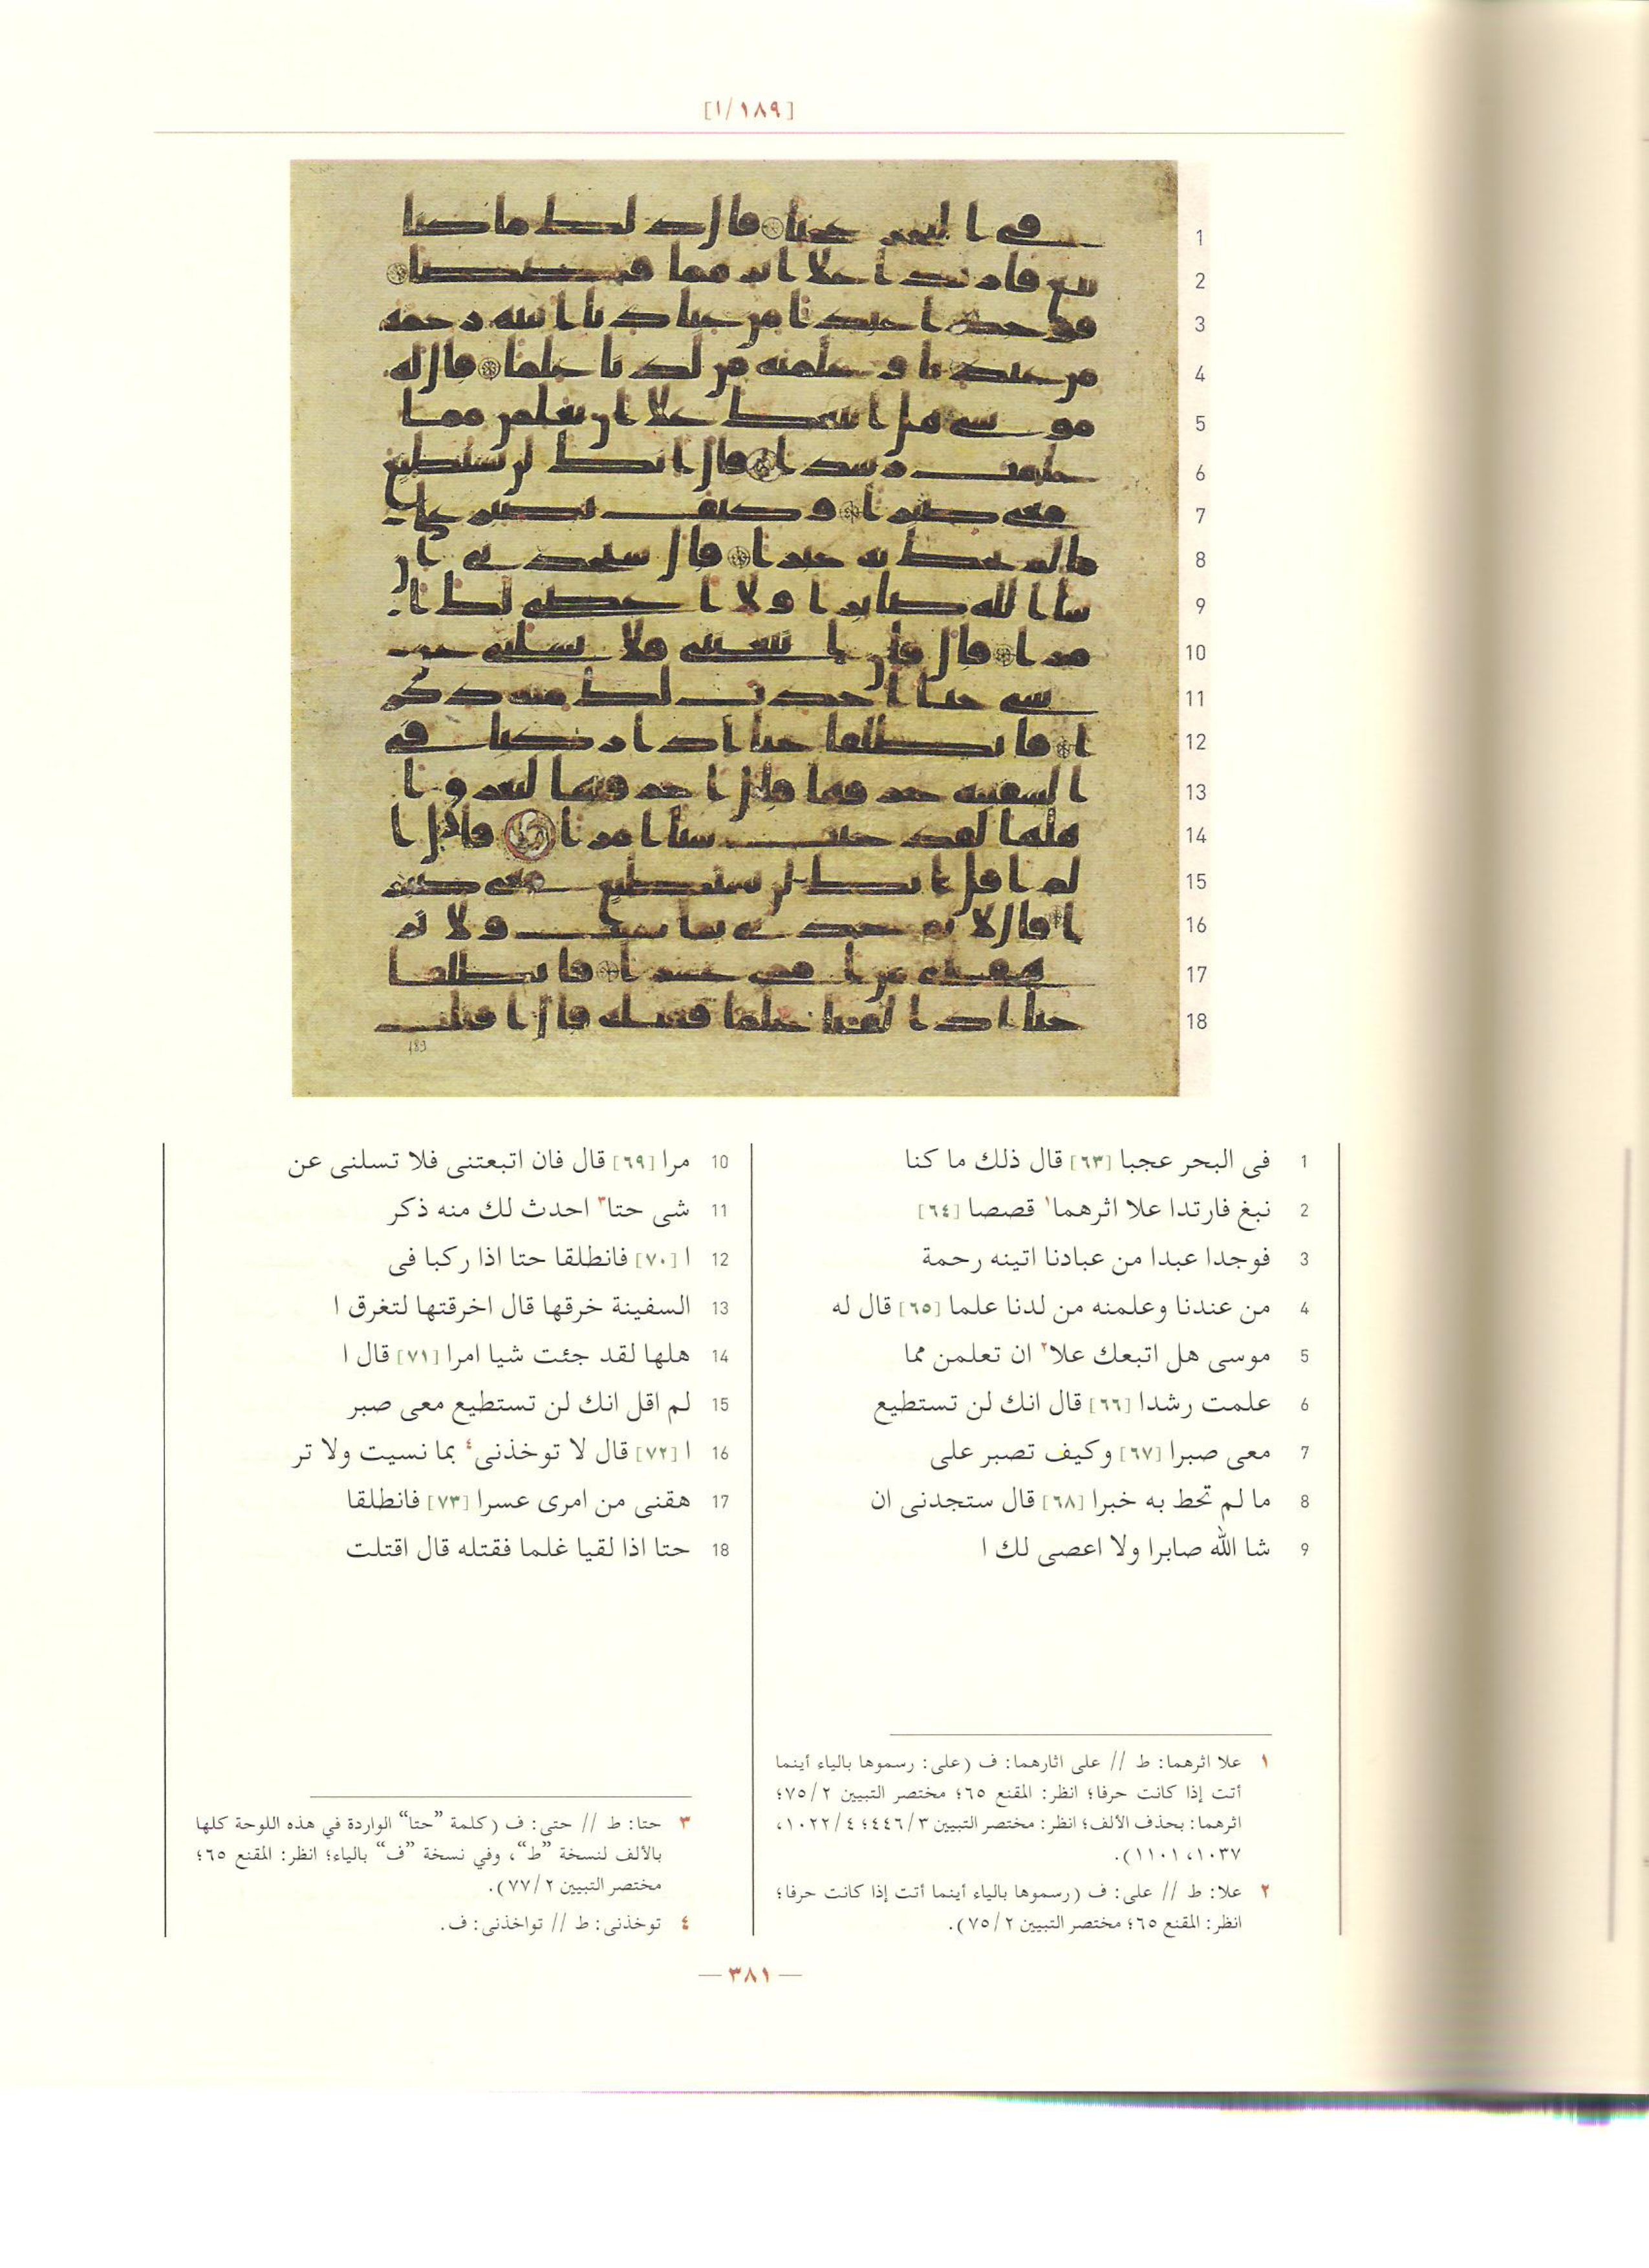 [١/١٨٩]
1 فى البحر عجبا [٦٣] قال ذلك ما كنا
2 نبغ فارتدا علا اثرهما١ قصصا [٦٤]
3 فوجدا عبدا من عبادنا اتينه رحمة
4 من عندنا وعلمنه من لدنا علما [٦٥] قال له
5 موسى هل اتبعك علا٢ ان تعلمن مما
6 علمت رشدا [٦٦] قال انك لن تستطيع
7 معى صبرا [٦٧] وكيف تصبر على
8 ما لم تحط به خبرا [٦٨] قال ستجدنى ان
9 شا الله صابرا ولا اعصى لك ا
10 مرا [٦٩] قال فان اتبعتنى فلا تسلنى عن
11 شى حتا٣ احدث لك منه ذكر
12 ا [٧٠] فانطلقا حتا اذا ركبا فى
13 السفينة خرقها قال اخرقتها لتغرق ا
14 هلها لقد جئت شيا امرا [٧١] قال ا
15 لم اقل انك لن تستطيع معى صبر
16 ا [٧٢] قال لا توخذنى٤ بما نسيت ولا تر
17 هقنى من امرى عسرا [٧٣] فانطلقا
18 حتا اذا لقيا غلما فقتله قال اقتلت
١ علا اثرهما: ط // على اثارهما: ف (على: رسموها بالياء أينما
أتت إذا كانت حرفا؛ انظر: المقنع ٦٥؛ مختصر التبيين ٧٥/٢؛
اثرهما: بحذف الألف؛ انظر: مختصر التبيين ٤٤٦/٣؛ ١٠٢٢/٤،
١٠٣٧، ١١٠١).
٢ علا: ط // على: ف (رسموها بالياء أينما أتت إذا كانت حرفا؛
انظر: المقنع ٦٥؛ مختصر التبيين ٧٥/٢).
٣ حتا: ط // حتى: ف (كلمة ”حتا“ الواردة في هذه اللوحة كلها
بالألف لنسخة ”ط“، وفي نسخة ”ف“ بالياء؛ انظر: المقنع ٦٥؛
مختصر التبيين ٧٧/٢).
٤ توخذنى: ط // تواخذنى: ف.
— ٣٨١ —